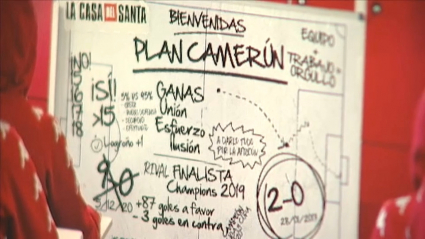 LA CASA DEL SANTA
BIENVENIDAS
EQUIPO
+
TRABAJO =
ORGULLO
PLAN CAMERÚN
¡NO!
5
6
7
8
¡SÍ!
x5
5% VS 95%
GANAS
Unión
Esfuerzo
Ilusión
Logroño +1
A DARLE TODO
POR LA AFICIÓN
RIVAL FINALISTA
Champions 2019
+87 goles a favor
- 3 goles en contra
/12/20
2-0